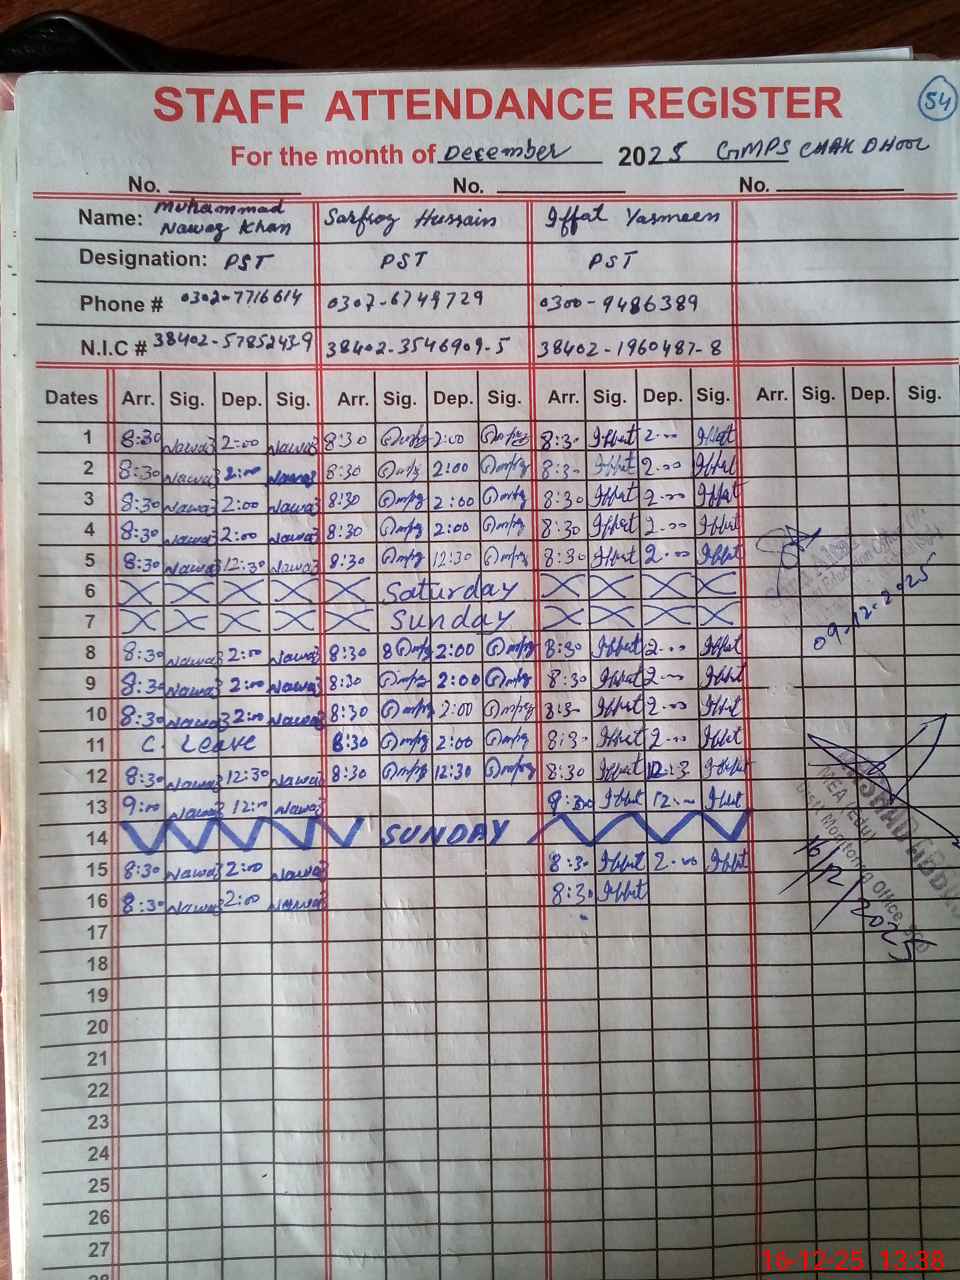 STAFF ATTENDANCE REGISTER 54
For the month of December 2025 GMPS CHAK DHOOL
No. No. No.
Name: Muhammad Nawaz Khan Sarfraz Hussain Iffat Yasmeen
Designation: PST PST PST
Phone # 0302-7716614 0307-6749729 0300-9486389
N.I.C # 38402-5785243-9 38402-3546909-5 38402-1960487-8
Dates Arr. Sig. Dep. Sig. Arr. Sig. Dep. Sig. Arr. Sig. Dep. Sig. Arr. Sig. Dep. Sig.
1 8:30 Nawaz 2:00 Nawaz 8:30 2:00 8:30 Iffat 2:00 Iffat
2 8:30 Nawaz 2:00 Nawaz 8:30 2:00 8:30 Iffat 2:00 Iffat
3 8:30 Nawaz 2:00 Nawaz 8:30 2:00 8:30 Iffat 2:00 Iffat
4 8:30 Nawaz 2:00 Nawaz 8:30 2:00 8:30 Iffat 2:00 Iffat
5 8:30 Nawaz 12:30 Nawaz 8:30 12:30 8:30 Iffat 2:00 Iffat
6 Saturday
7 Sunday
09-12-2025
8 8:30 Nawaz 2:00 Nawaz 8:30 2:00 8:30 Iffat 2:00 Iffat
9 8:30 Nawaz 2:00 Nawaz 8:30 2:00 8:30 Iffat 2:00 Iffat
10 8:30 Nawaz 2:00 Nawaz 8:30 2:00 8:30 Iffat 2:00 Iffat
11 C. Leave 8:30 2:00 8:30 Iffat 2:00 Iffat
12 8:30 Nawaz 12:30 Nawaz 8:30 12:30 8:30 Iffat 12:3 Iffat
13 9:00 Nawaz 12:00 Nawaz 9:30 Iffat 12:00 Iffat
14 SUNDAY
MEA (Edu)
Distt Monitoring Office
16/12/2025
15 8:30 Nawaz 2:00 Nawaz 8:30 Iffat 2:00 Iffat
16 8:30 Nawaz 2:00 Nawaz 8:30 Iffat
17
18
19
20
21
22
23
24
25
26
27
28
16-12-25 13:38